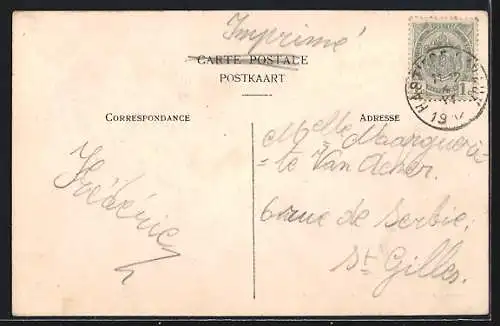 Imprimé
CARTE POSTALE
POSTKAART
CORRESPONDANCE
ADRESSE
Frédéric
Melle Margueri
=te Van Acker.
6 rue de Serbie,
St Gilles.
1